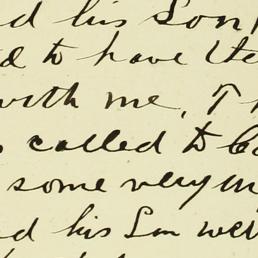 d his Son
d to have the
with me, T
s called to
some very
d his Son wer